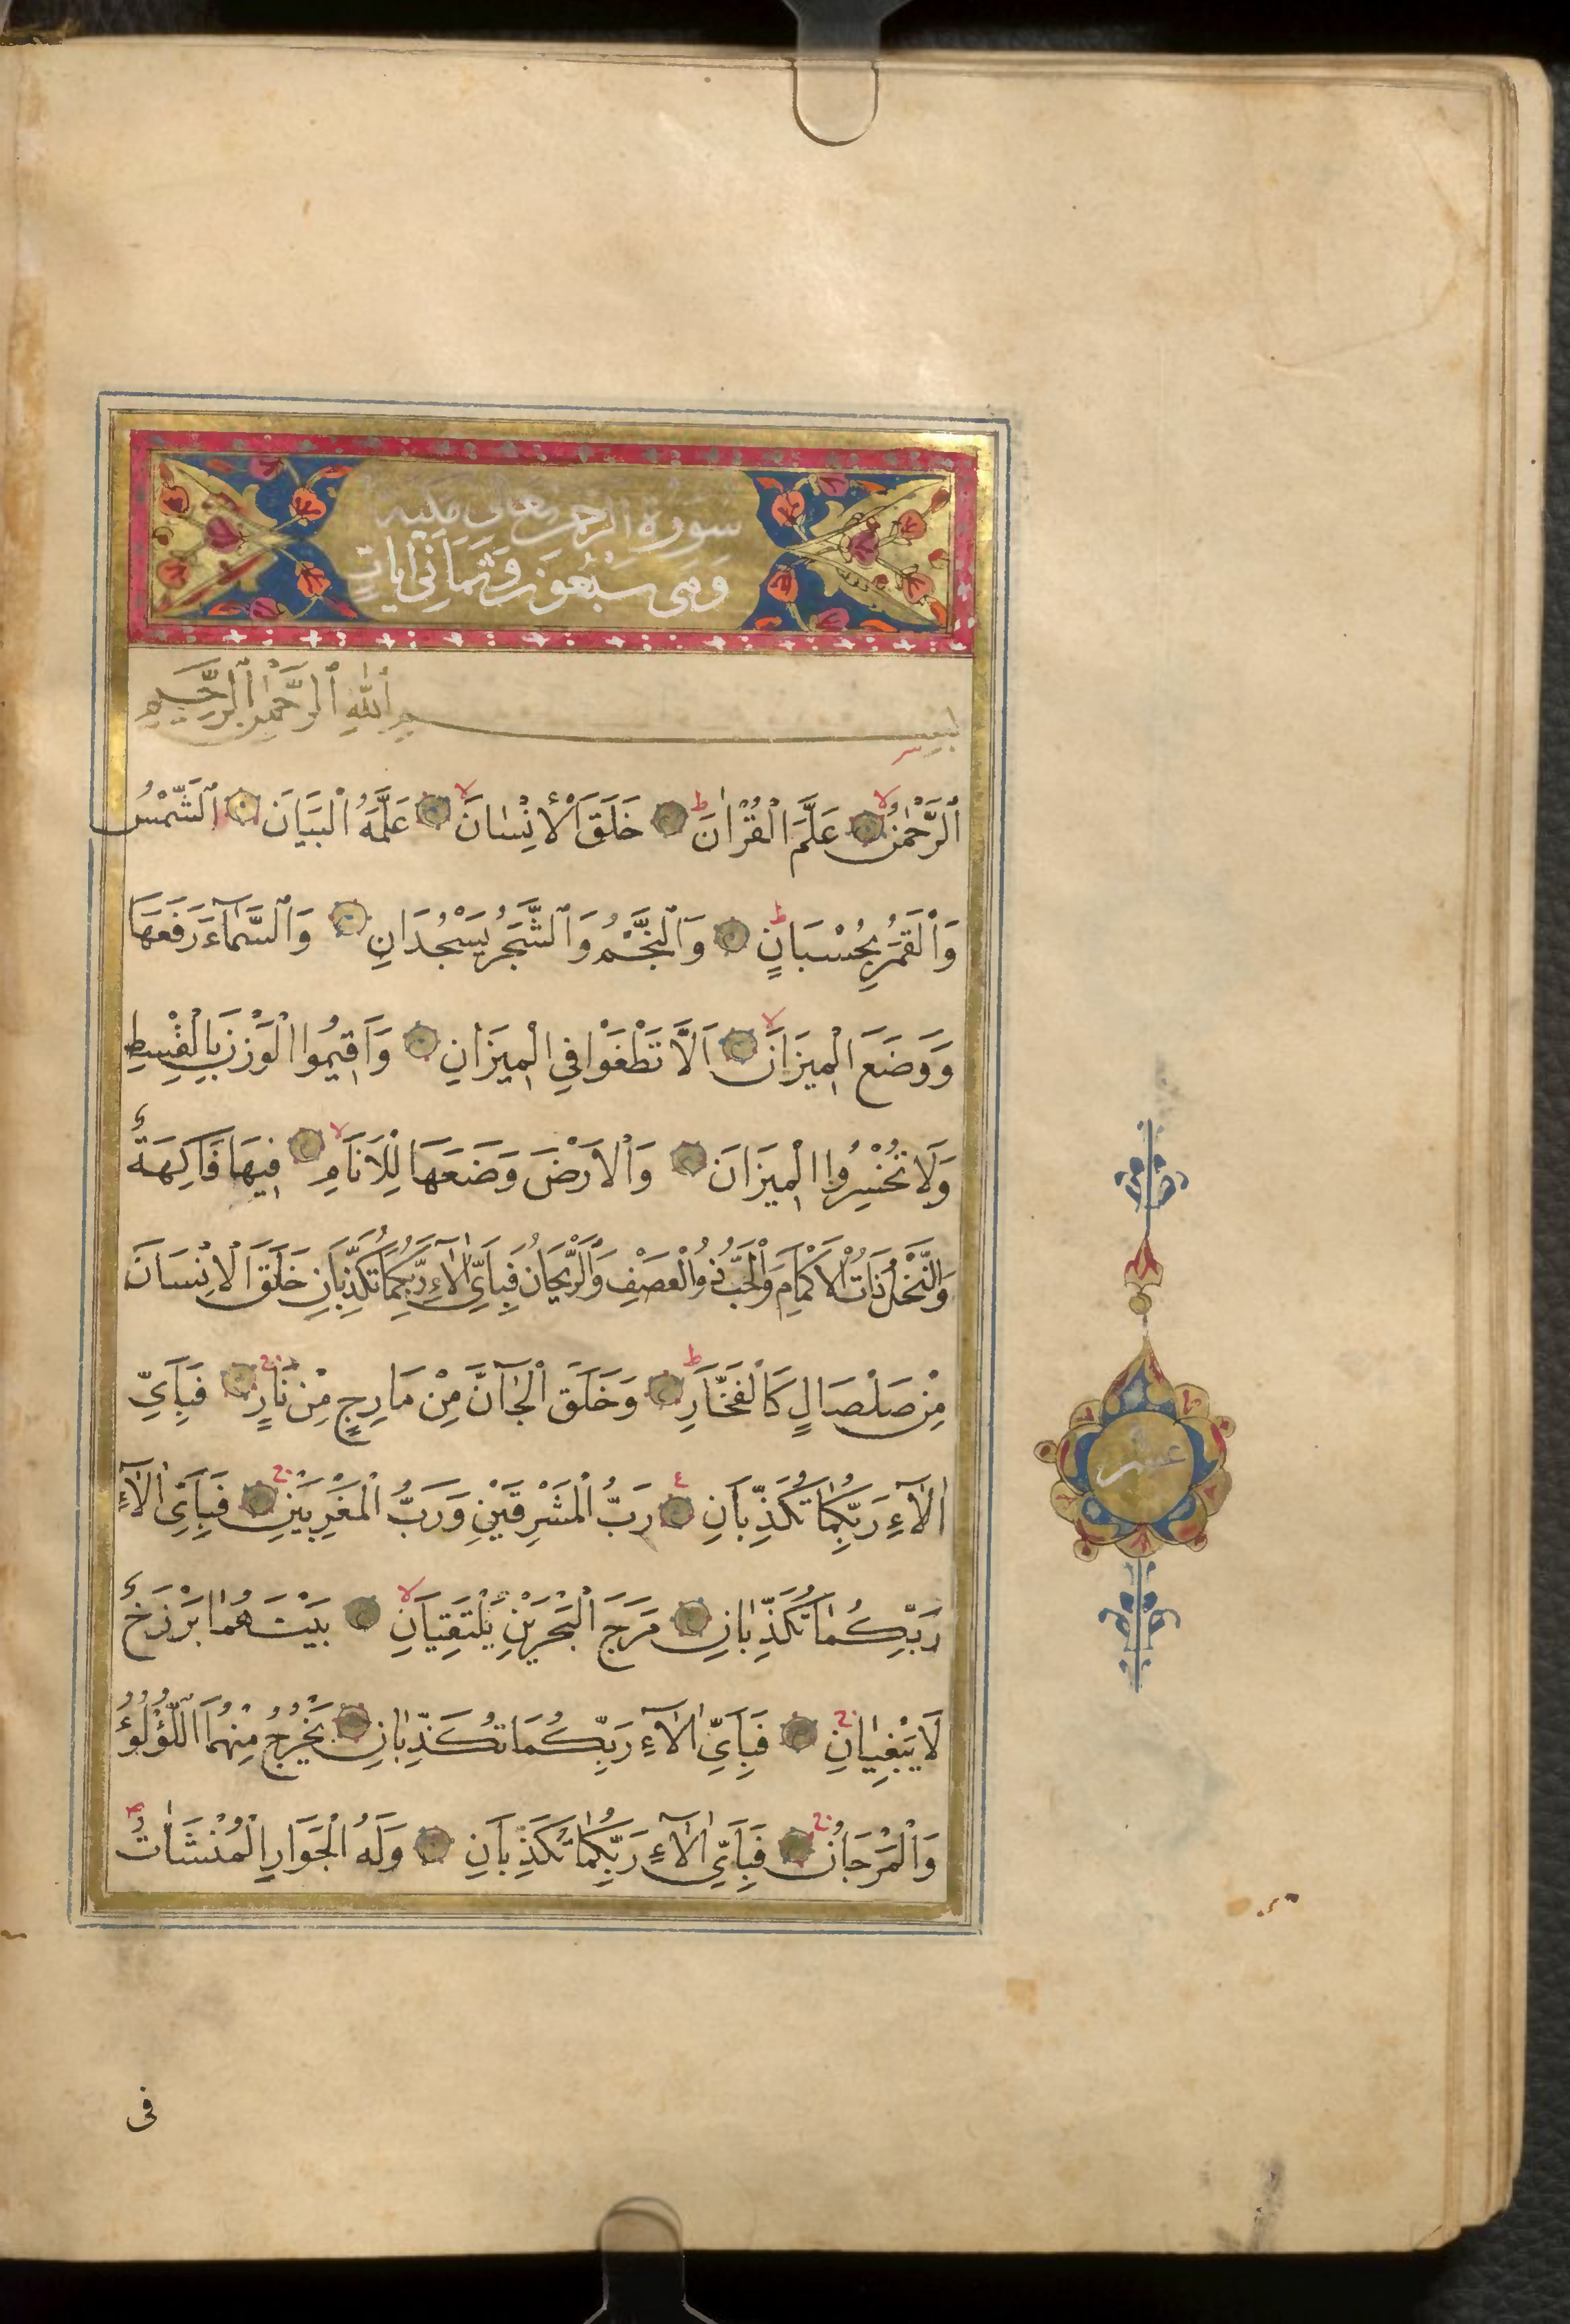 سورة الرحمن تعالى مكية
وهى سبعون وثمانى ايات
بسم ٱلله ٱلرحمن ٱلرحيم
ٱلرَّحْمٰنُ عَلَّمَ الْقُرْاٰنَ خَلَقَ الْاِنْسَانَ عَلَّمَهُ الْبَيَانَ اَلشَّمْسُ
وَالْقَمَرُ بِحُسْبَانٍ وَالنَّجْمُ وَالشَّجَرُ يَسْجُدَانِ وَالسَّمَآءَ رَفَعَهَا
وَوَضَعَ الْمِيزَانَ اَلَّا تَطْغَوْا فِي الْمِيزَانِ وَاَقِيمُوا الْوَزْنَ بِالْقِسْطِ
وَلَا تُخْسِرُوا الْمِيزَانَ وَالْاَرْضَ وَضَعَهَا لِلْاَنَامِ فِيهَا فَاكِهَةٌ
وَالنَّخْلُ ذَاتُ الْاَكْمَامِ وَالْحَبُّ ذُو الْعَصْفِ وَالرَّيْحَانُ فَبِاَيِّ اٰلَآءِ رَبِّكُمَا تُكَذِّبَانِ خَلَقَ الْاِنْسَانَ
مِنْ صَلْصَالٍ كَالْفَخَّارِ وَخَلَقَ الْجَآنَّ مِنْ مَارِجٍ مِنْ نَارٍ فَبِاَيِّ
اٰلَآءِ رَبِّكُمَا تُكَذِّبَانِ رَبُّ الْمَشْرِقَيْنِ وَرَبُّ الْمَغْرِبَيْنِ فَبِاَيِّ اٰلَآءِ
رَبِّكُمَا تُكَذِّبَانِ مَرَجَ الْبَحْرَيْنِ يَلْتَقِيَانِ بَيْنَهُمَا بَرْزَخٌ
لَا يَبْغِيَانِ فَبِاَيِّ اٰلَآءِ رَبِّكُمَا تُكَذِّبَانِ يَخْرُجُ مِنْهُمَا اللُّؤْلُؤُ
وَالْمَرْجَانُ فَبِاَيِّ اٰلَآءِ رَبِّكُمَا تُكَذِّبَانِ وَلَهُ الْجَوَارِ الْمُنْشَاٰتُ
عشر
فى